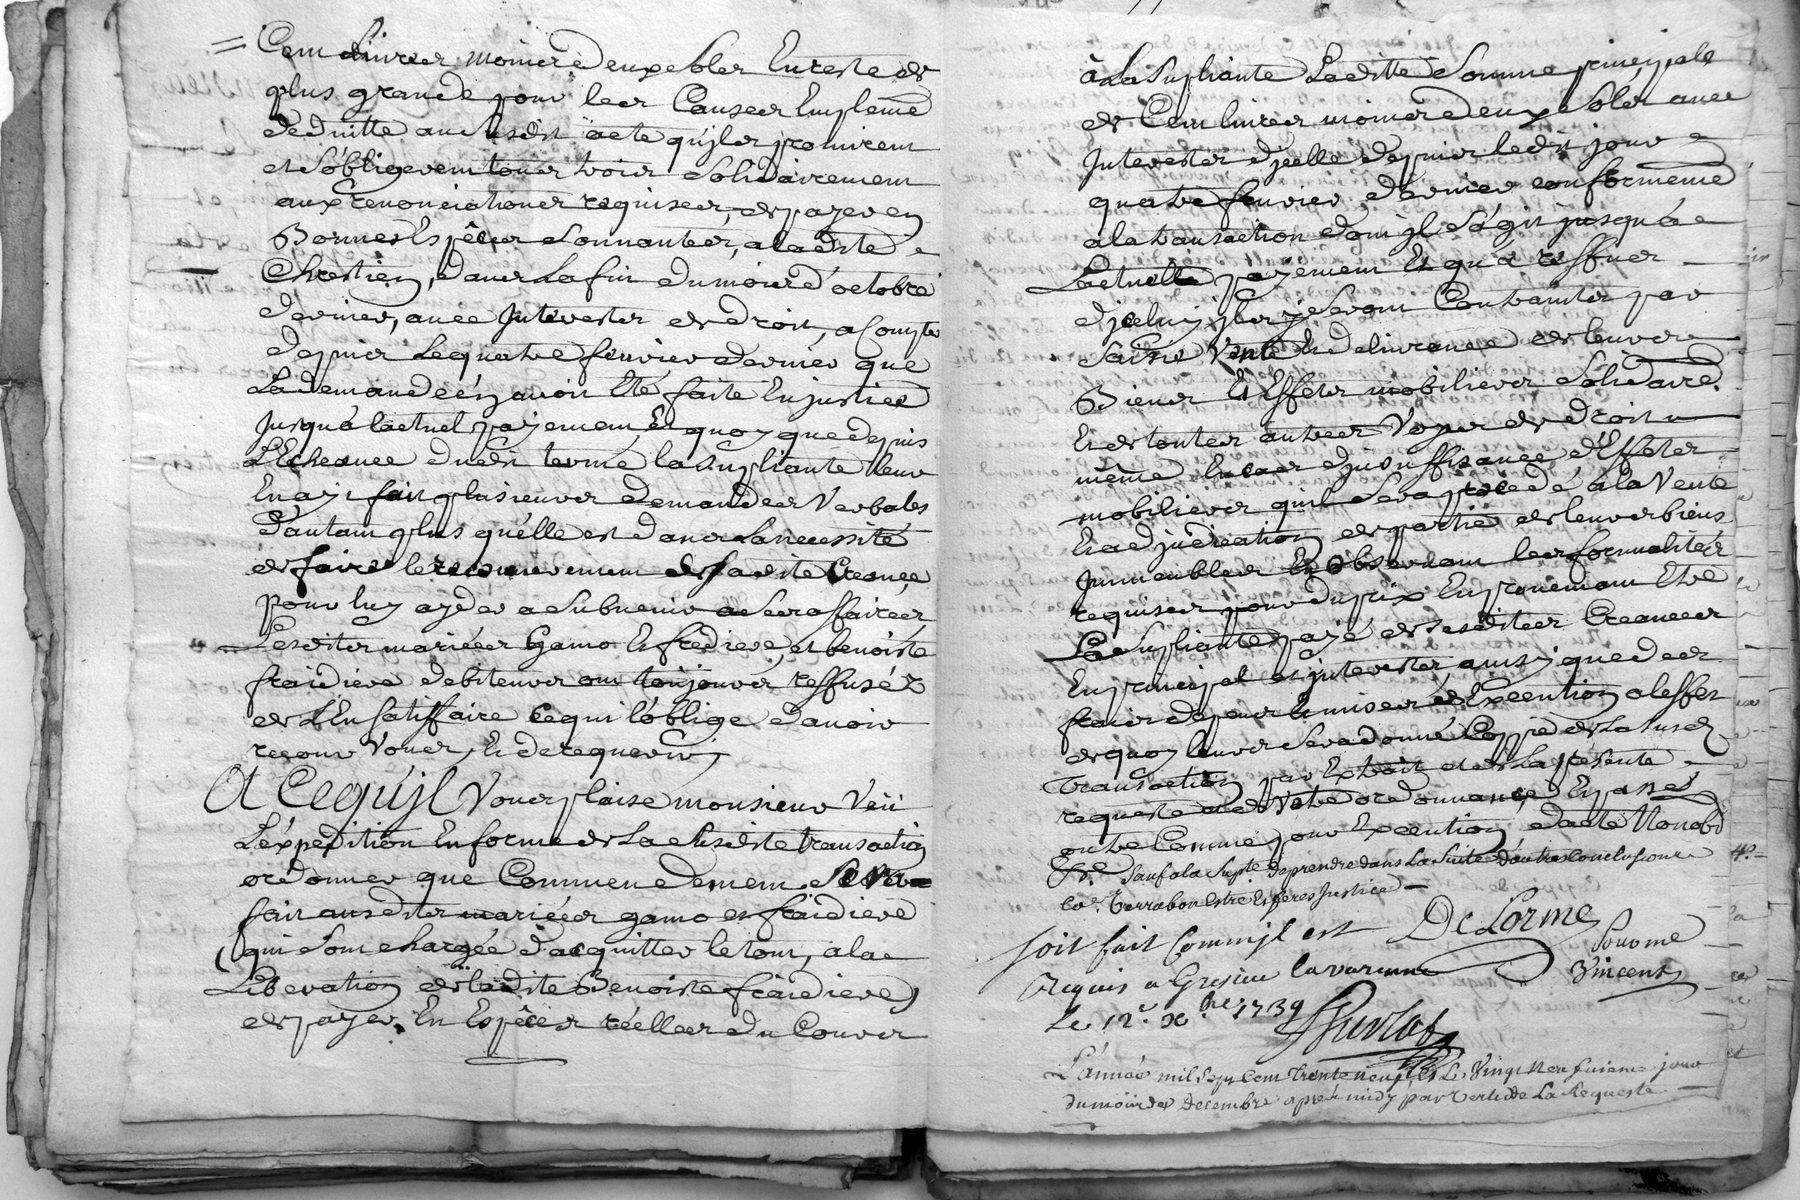 Cent livres moins deux sols En reste de
plus grande pour les Causes Emplement
deduitte au susdit acte qu'jls promirent
et s'obligerent tous trois solidairement
aux renonciationes requises, de payer en
Bonnes Espèces sonnantes, a ladite
Chrestien, dans La fin du mois d'octobre
dernier, avec Interests de droit, a Compter
depuis Le quatre feuvrier dernier que
La demande en avoit Eté faite En justice
Jusqu'à l'actuel payement Et quoy que depuis
L'Echeance dudit terme la supliante leur
En ayt fait plusieurs demandes Verbales
d'autant plus qu'elle est dans La necessité
de faire le recouvrement de sadite Creance
pour luy ayder a subvenir a ses affaires
Lesdits mariées Gamo Et fredieve, et benoiste
fraidieve debiteurs ont toujours reffusés
de L'En satisfaire Ce qui l'oblige d'avoir
recour Vous, Et de requerir
A Ce qu'jl Vous plaise monsieur Veu
L'expedition En forme de La susdite transaction
ordonner que Commendement Sera
fait ausdits mariées gamo et fraidieve
(qui sont chargée d'acquitter le tout, a la
Liberation de ladite Benoiste fraidieve)
de payer En Espèces réelles du Cours
à La supliante Laditte somme principale
de Cent livres moins deux sols avec
Interests d'jcelle depuis ledit jour
quatre feuvrier dernier conformement
a la transaction dont jl s'agit jusqu'a
L'actuelle payement Et qu'a reffuer
d'jceluy jls y seront Contraints par
saisie Vente Et delivrance de leurs
Biens Et Effets mobiliers solidaire.
Et de toutes autres Voyes de droit
mème En cas d'insuffisance d'Effets
mobiliers qu'il sera procedé a la Vente
Et adjudication de partie de leurs biens
Immeubles En observant les formalités
requises pour du prix En provenant Etre
La supliante payé de sesdites Creances
En principal et jnterests ainsy que des
frais depens et mises d'Execution a l'effet
de quoy leurs sera donné Coppie de La susd.
Transaction par Extrait et de La presente
requeste et de Votre ordonnance En
outre Comme pour Execution d'acte Nonobs
Sauf a la Supte de prendre dans La Suite d'autres Conclusions
Et feres Justice
De Lorme
soit fait Comm jl est
Pour me
Vincent
requis a Gresieu lavarenne
Le 12e Xbre 1739
L'année mil sept Cent trente neuf Et Le Vingt neufuieme jour
du mois de Decembre apres midy par Vertu de La Requeste